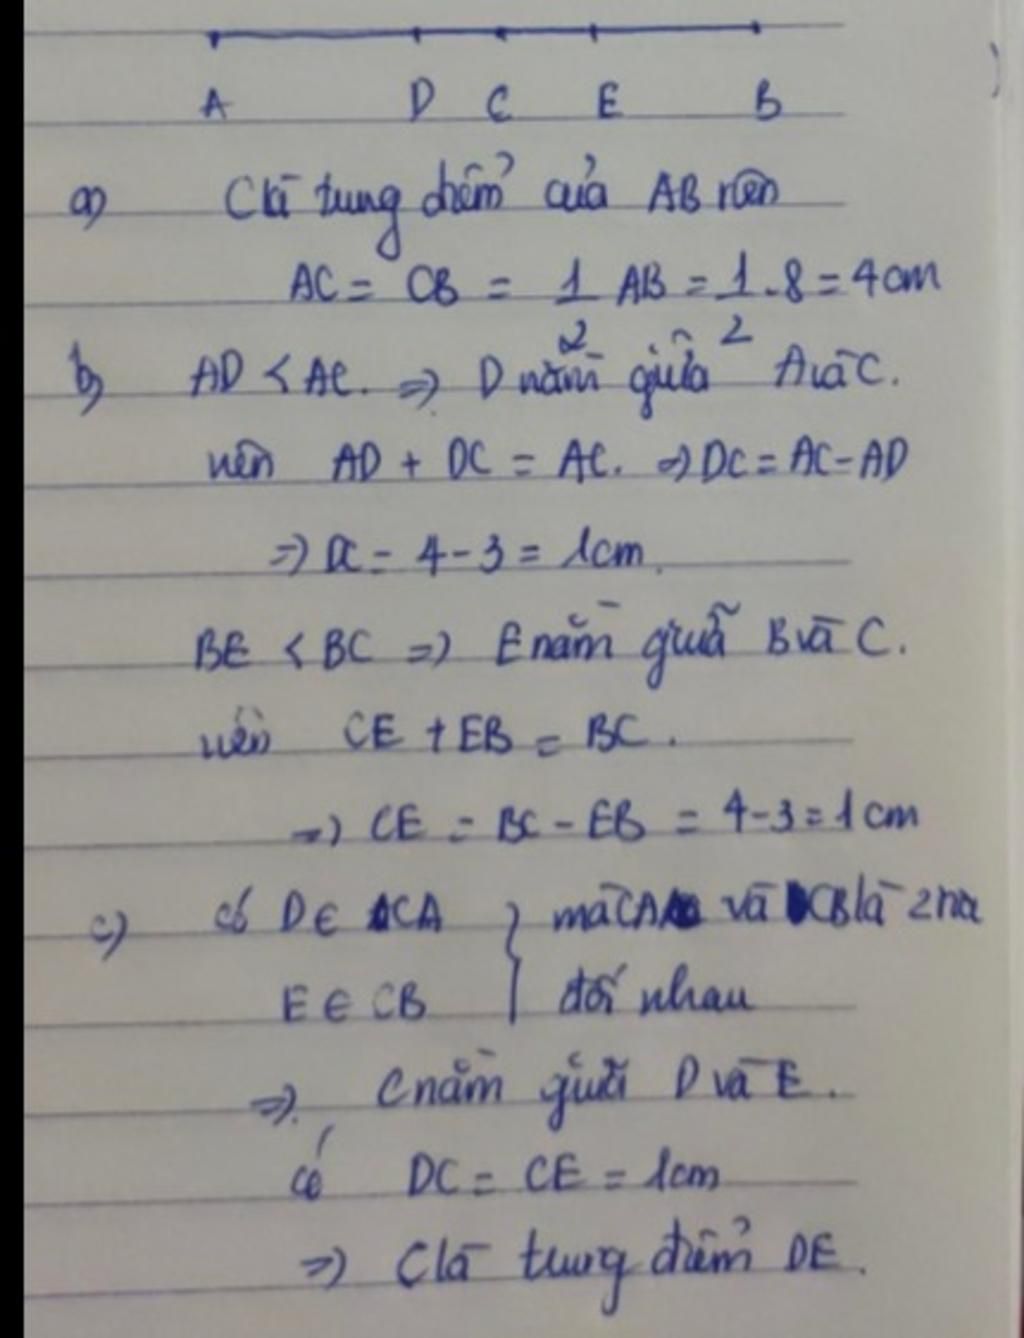 A D C E B
a) C là trung điểm của AB nên
AC = CB = 1/2 AB = 1/2 . 8 = 4cm
b) AD < AC. => D nằm giữa A và C.
nên AD + DC = AC. => DC = AC - AD
=> DC = 4 - 3 = 1cm.
BE < BC => E nằm giữa B và C.
nên CE + EB = BC.
=> CE = BC - EB = 4 - 3 = 1 cm
c) có D ∈ CA } mà CA và CB là 2 tia
E ∈ CB đối nhau
=> C nằm giữa D và E.
có DC = CE = 1cm
=> C là trung điểm DE.